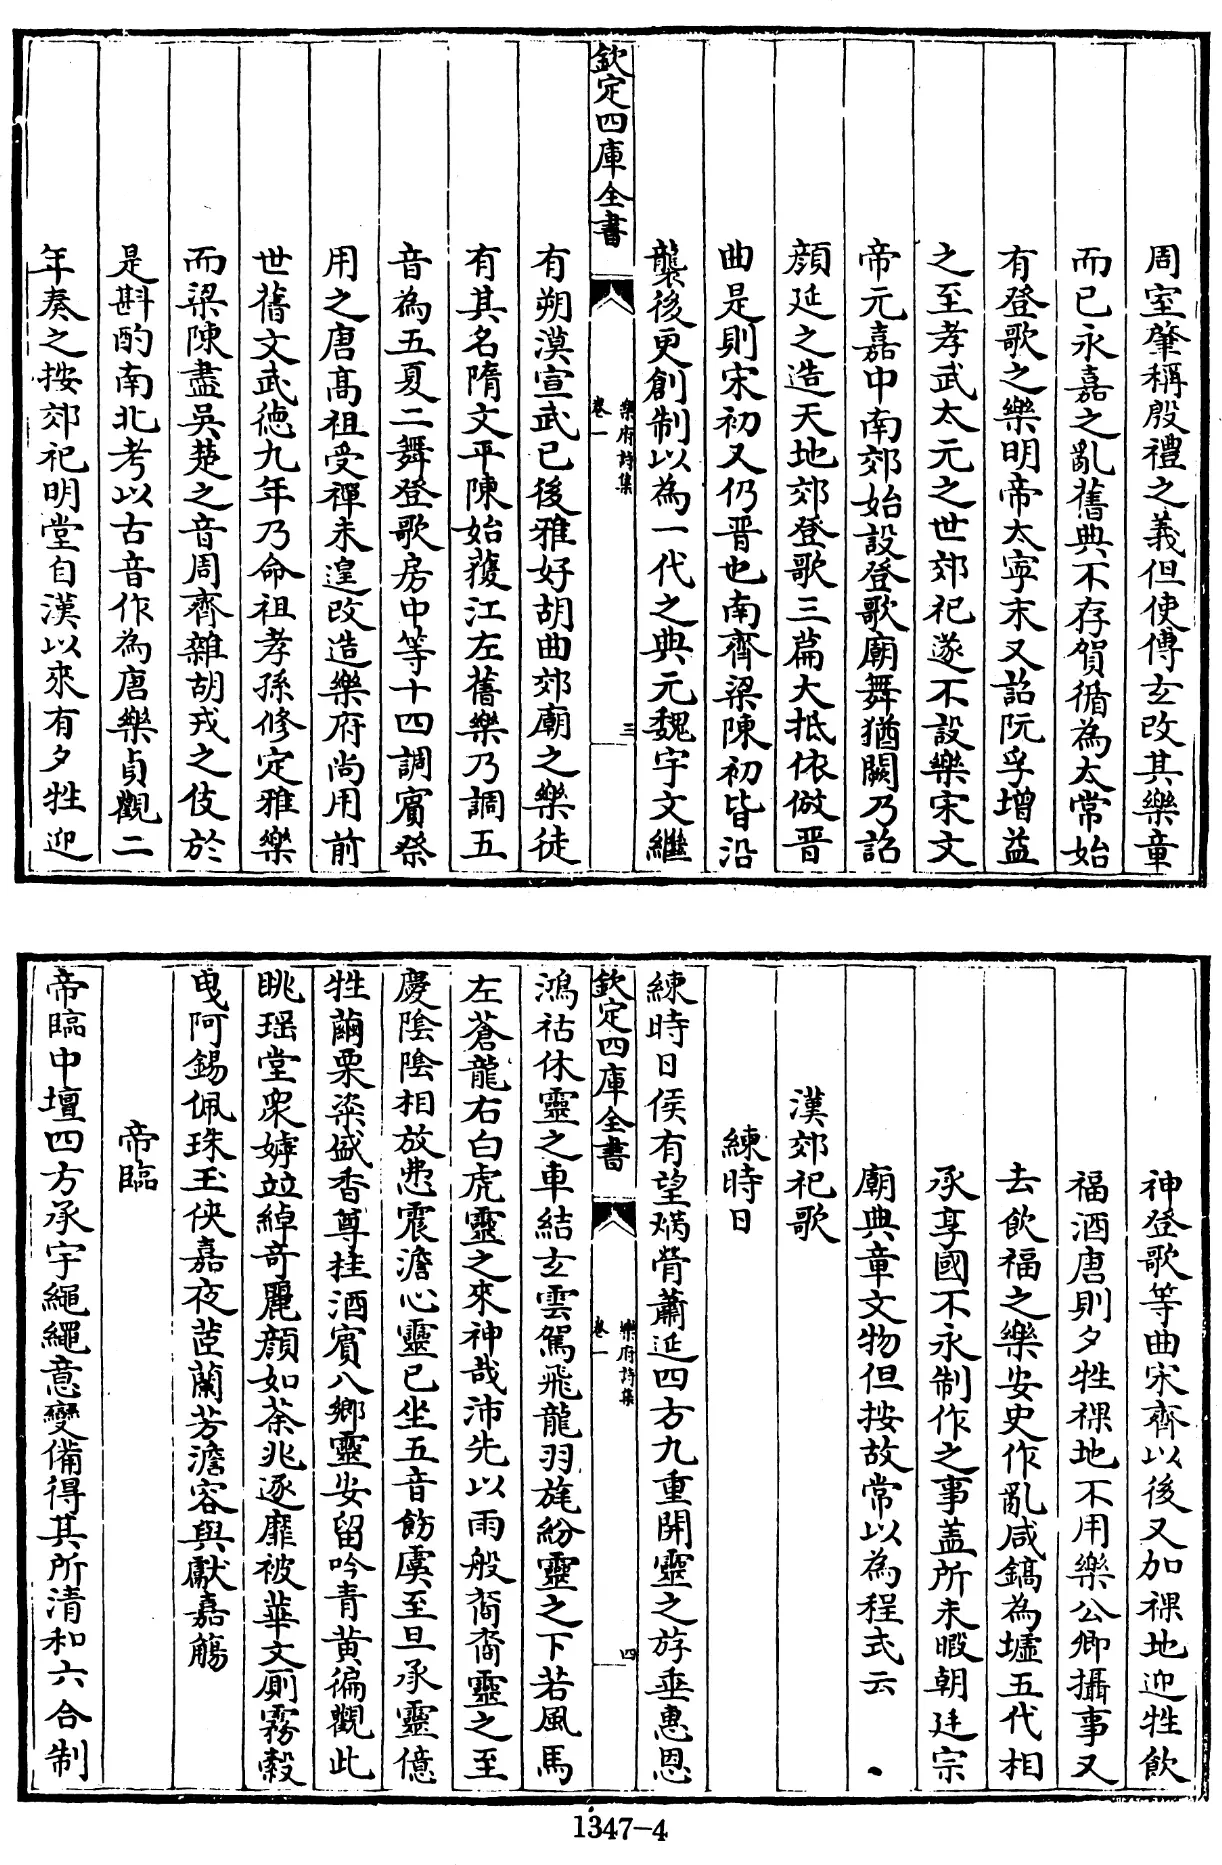 周室肇稱殷禮之義但使傅玄改其樂章
而已永嘉之亂舊典不存賀循為太常始
有登歌之樂明帝太寧末又詔阮孚增益
之至孝武太元之世郊祀遂不設樂宋文
帝元嘉中南郊始設登歌廟舞猶闕乃詔
顔延之造天地郊登歌三篇大抵依倣晉
曲是則宋初又仍晉也南齊梁陳初皆沿
襲後更創制以為一代之典元魏宇文繼
欽定四庫全書
樂府詩集
卷一
三
有朔漠宣武已後雅好胡曲郊廟之樂徒
有其名隋文平陳始獲江左舊樂乃調五
音為五夏二舞登歌房中等十四調賓祭
用之唐髙祖受禪未遑改造樂府尚用前
世舊文武德九年乃命祖孝孫修定雅樂
而梁陳盡吳楚之音周齊雜胡戎之伎於
是斟酌南北考以古音作為唐樂貞觀二
年奏之按郊祀明堂自漢以來有夕牲迎
神登歌等曲宋齊以後又加祼地迎牲飲
福酒唐則夕牲祼地不用樂公卿攝事又
去飲福之樂安史作亂咸鎬為墟五代相
承享國不永制作之事盖所未暇朝廷宗
廟典章文物但按故常以為程式云
漢郊祀歌
練時日
練時日侯有望焫膋蕭延四方九重開靈之斿垂惠恩
欽定四庫全書
樂府詩集
卷一
四
鴻祜休靈之車結玄雲駕飛龍羽旄紛靈之下若風馬
左蒼龍右白虎靈之來神哉沛先以雨般裔裔靈之至
慶陰陰相放悲震澹心靈已坐五音飭虞至旦承靈億
牲繭栗粢盛香尊桂酒賓八鄉靈安留吟青黄徧觀此
眺瑶堂衆嫭竝綽竒麗顔如荼兆逐靡被華文厠霧縠
曳阿錫佩珠玉俠嘉夜茝蘭芳澹容與獻嘉觴
帝臨
帝臨中壇四方承宇繩繩意變備得其所清和六合制
1347-4